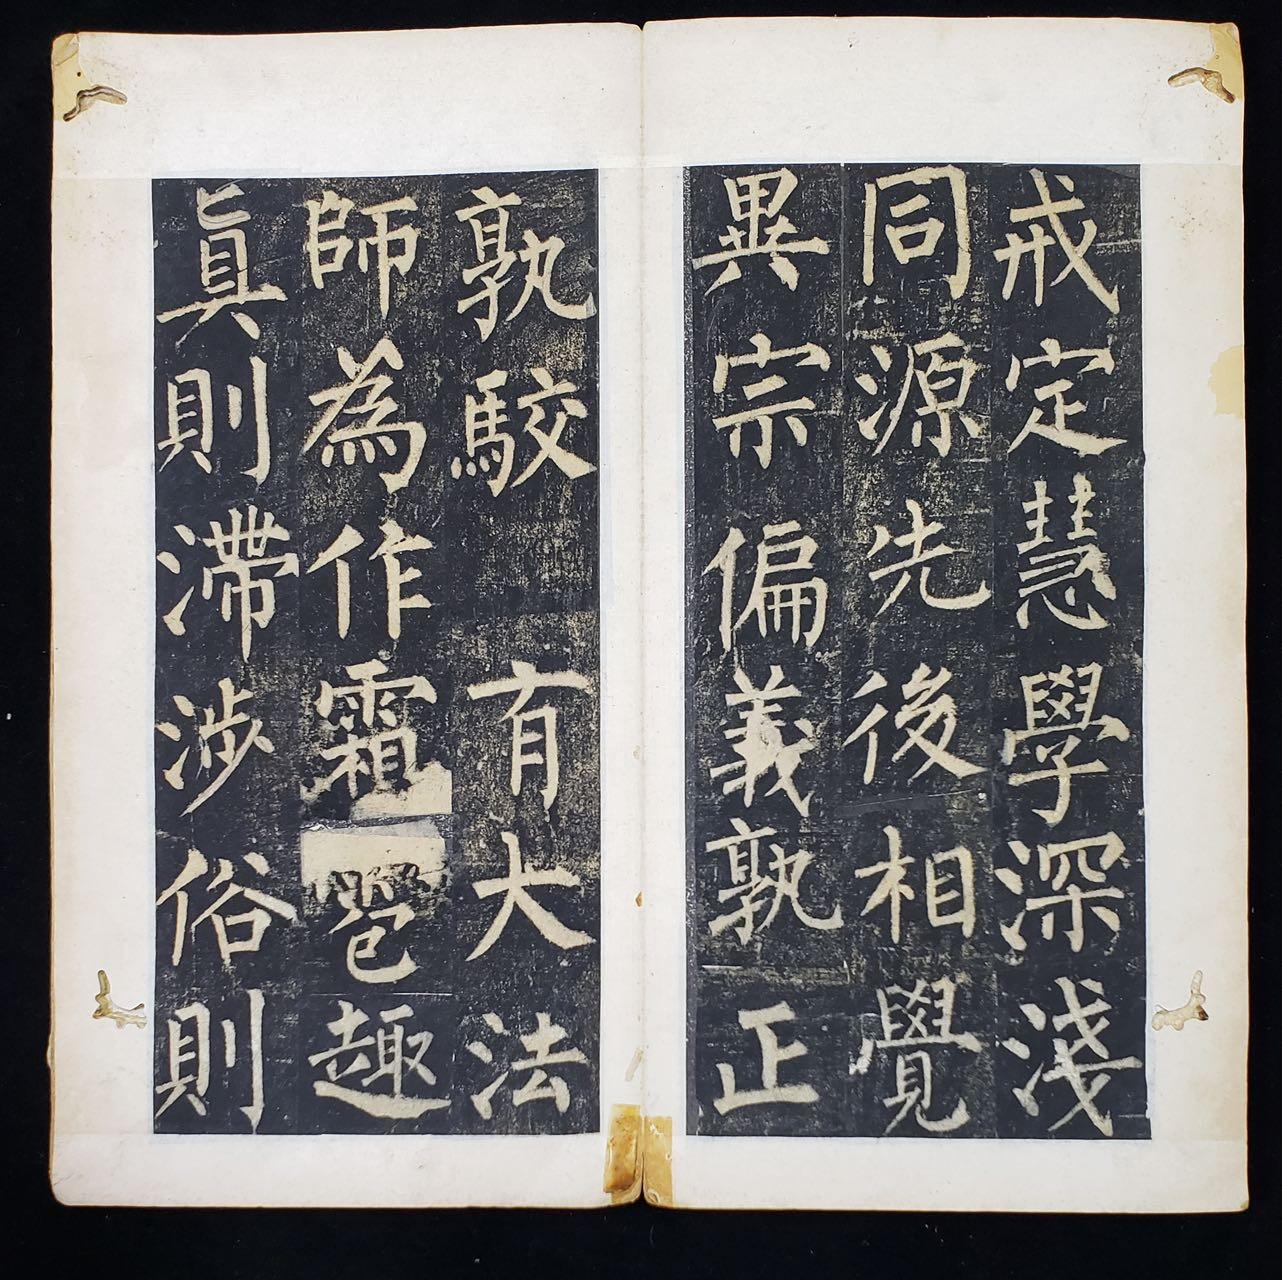 戒定慧學深淺
同源先後相覺
異宗偏義孰正
孰駮有大法
師為作霜雹趣
真則滯涉俗則